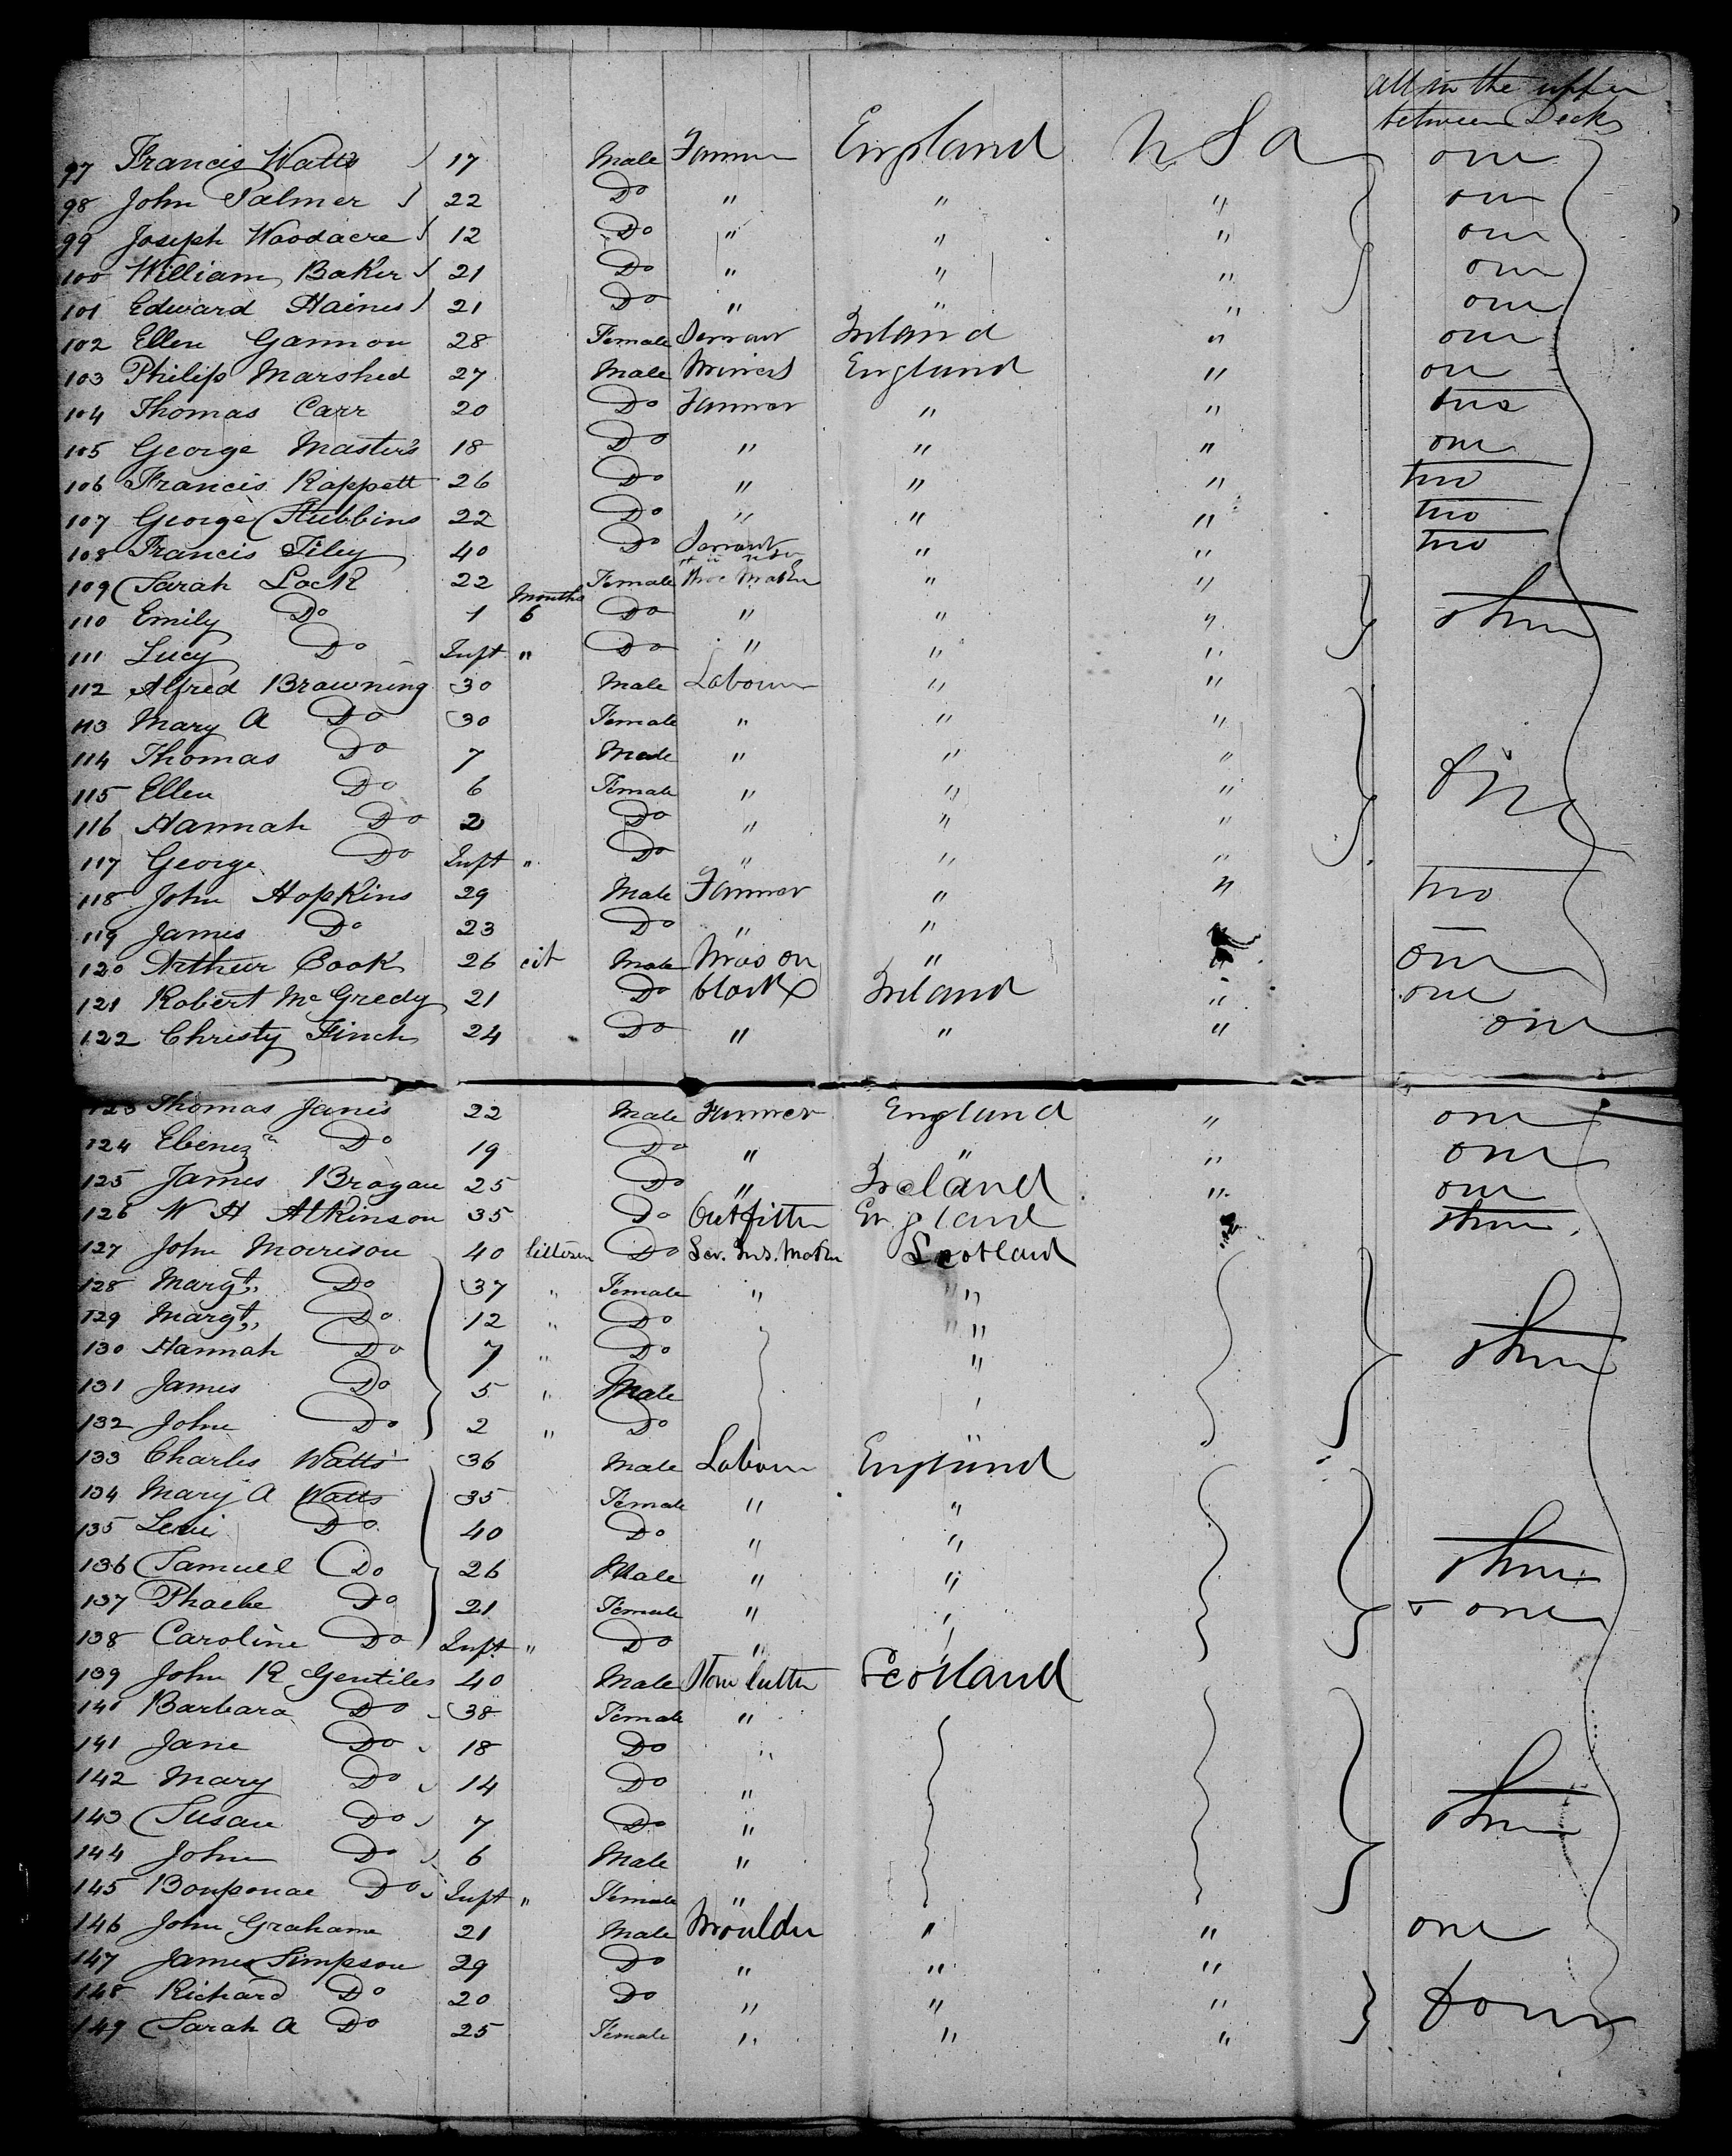 all in the upper
between Decks
97 Francis Watts 17 Male Farmer England U S A one
98 John Palmer 22 Do " " " one
99 Joseph Woodacre 12 Do " " " one
100 William Baker 21 Do " " " one
101 Edward Haines 21 Do " " " one
102 Ellen Gannon 28 Female Servant Ireland " one
103 Philip Marshed 27 Male Miner England " one
104 Thomas Carr 20 Do Farmer " " two
105 George Masters 18 Do " " " one
106 Francis Rappett 26 Do " " " two
107 George Stubbins 22 Do " " " two
108 Francis Tiley 40 Do Servant " " two
109 Sarah Lock 22 Female Shoe Maker " "
110 Emily Do 1 Months 6 Do " " " three
111 Lucy Do Inft " Do " " "
112 Alfred Browning 30 Male Labourer " "
113 Mary A Do 30 Female " " "
114 Thomas Do 7 Male " " "
115 Ellen Do 6 Female " " " five
116 Hannah Do 2 Do " " "
117 George Do Inft " Do " " "
118 John Hopkins 29 Male Farmer " " two
119 James Do 23 Do " "
120 Arthur Cook 26 cit Male Mason " " one
121 Robert McGredy 21 Do Clark Ireland " one
122 Christy Finch 24 Do " " " one
123 Thomas Janis 22 Male Farmer England " one
124 Ebenezr Do 19 Do " " " one
125 James Brogan 25 Do " Ireland " one
126 W H Atkinson 35 Do Outfitter England " three
127 John Morrison 40 Do Sci. Ins. Maker Scotland
128 Margt Do 37 " Female " "
129 Margt Do 12 " Do "
130 Hannah Do 7 " Do " three
131 James Do 5 " Male "
132 John Do 2 " Do "
133 Charles Watts 36 Male Labourer England
134 Mary A Watts 35 Female " "
135 Levi Do 40 Do " "
136 Samuel Do 26 Male " " three
137 Phoebe Do 21 Female " " & one
138 Caroline Do Inft " Do " "
139 John R Gentiles 40 Male Stone Cutter Scotland
140 Barbara Do 38 Female "
141 Jane Do 18 Do "
142 Mary Do 14 Do "
143 Susan Do 7 Do " three
144 John Do 6 Male "
145 Do Inft " Female "
146 John Grahame 21 Male Moulder " " one
147 James Simpson 29 Do " " "
148 Richard Do 20 Do " " " four
149 Sarah A Do 25 Female " " "